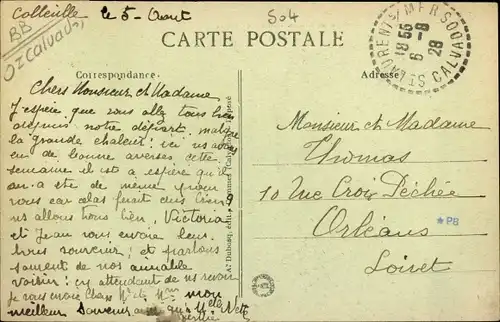 Colleville, le 5 Aout
504
BB
Oz Calvados
CARTE POSTALE
Correspondance.
Adresse
ST LAURENT S/ MER
CALVADOS
18 55
6 -8
28
Chers Monsieur et Madame
J'espère que vous allez tous bien
depuis notre départ, malgré
la grande chaleur; ici nous avons
eu de bonne averses cette
semaine il est a espère qu'il
en a été de même pour
vous car celas ferait du bien
nous allons tous bien, Victoria
et Jean vous envoie leur
bons souvenir; et parlons
souvent de nos aimable
voisin; en attendant de vous revoir
je vous envoie Chers Mr et Mme mon
meilleur Souvenir ainsi qu'à Melle
Berthe
Monsieur et Madame
Thomas
10 Rue Croix Péchée
Orléans
*PB
Loiret
Dubosq, édit.